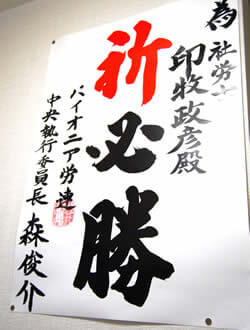 為
社労士
印牧政彦殿
祈必勝
パイオニア労連
中央執行委員長
森俊介